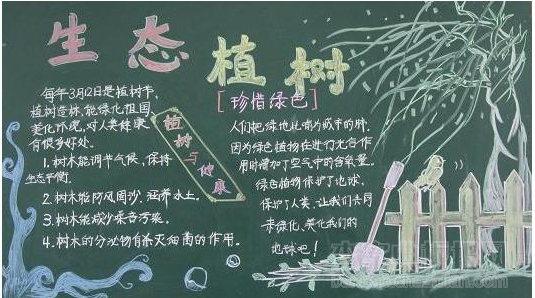 生态植树
[珍惜绿色]
每年3月12日是植树节,
植树造林,能绿化祖国,
美化环境,对人类健康
有很多好处。
1.树木能调节气候,保持
生态平衡。
2.树木能防风固沙,涵养水土。
3.树木能减少噪音污染。
4.树木的分泌物有杀灭细菌的作用。
植树与健康
人们把绿地比喻为城市的肺,
因为绿色植物在进行光合作
用时增加了空气中的含氧量。
绿色植物保护了地球,
保护了人类,让我们共同
来绿化、美化我们的
地球吧!